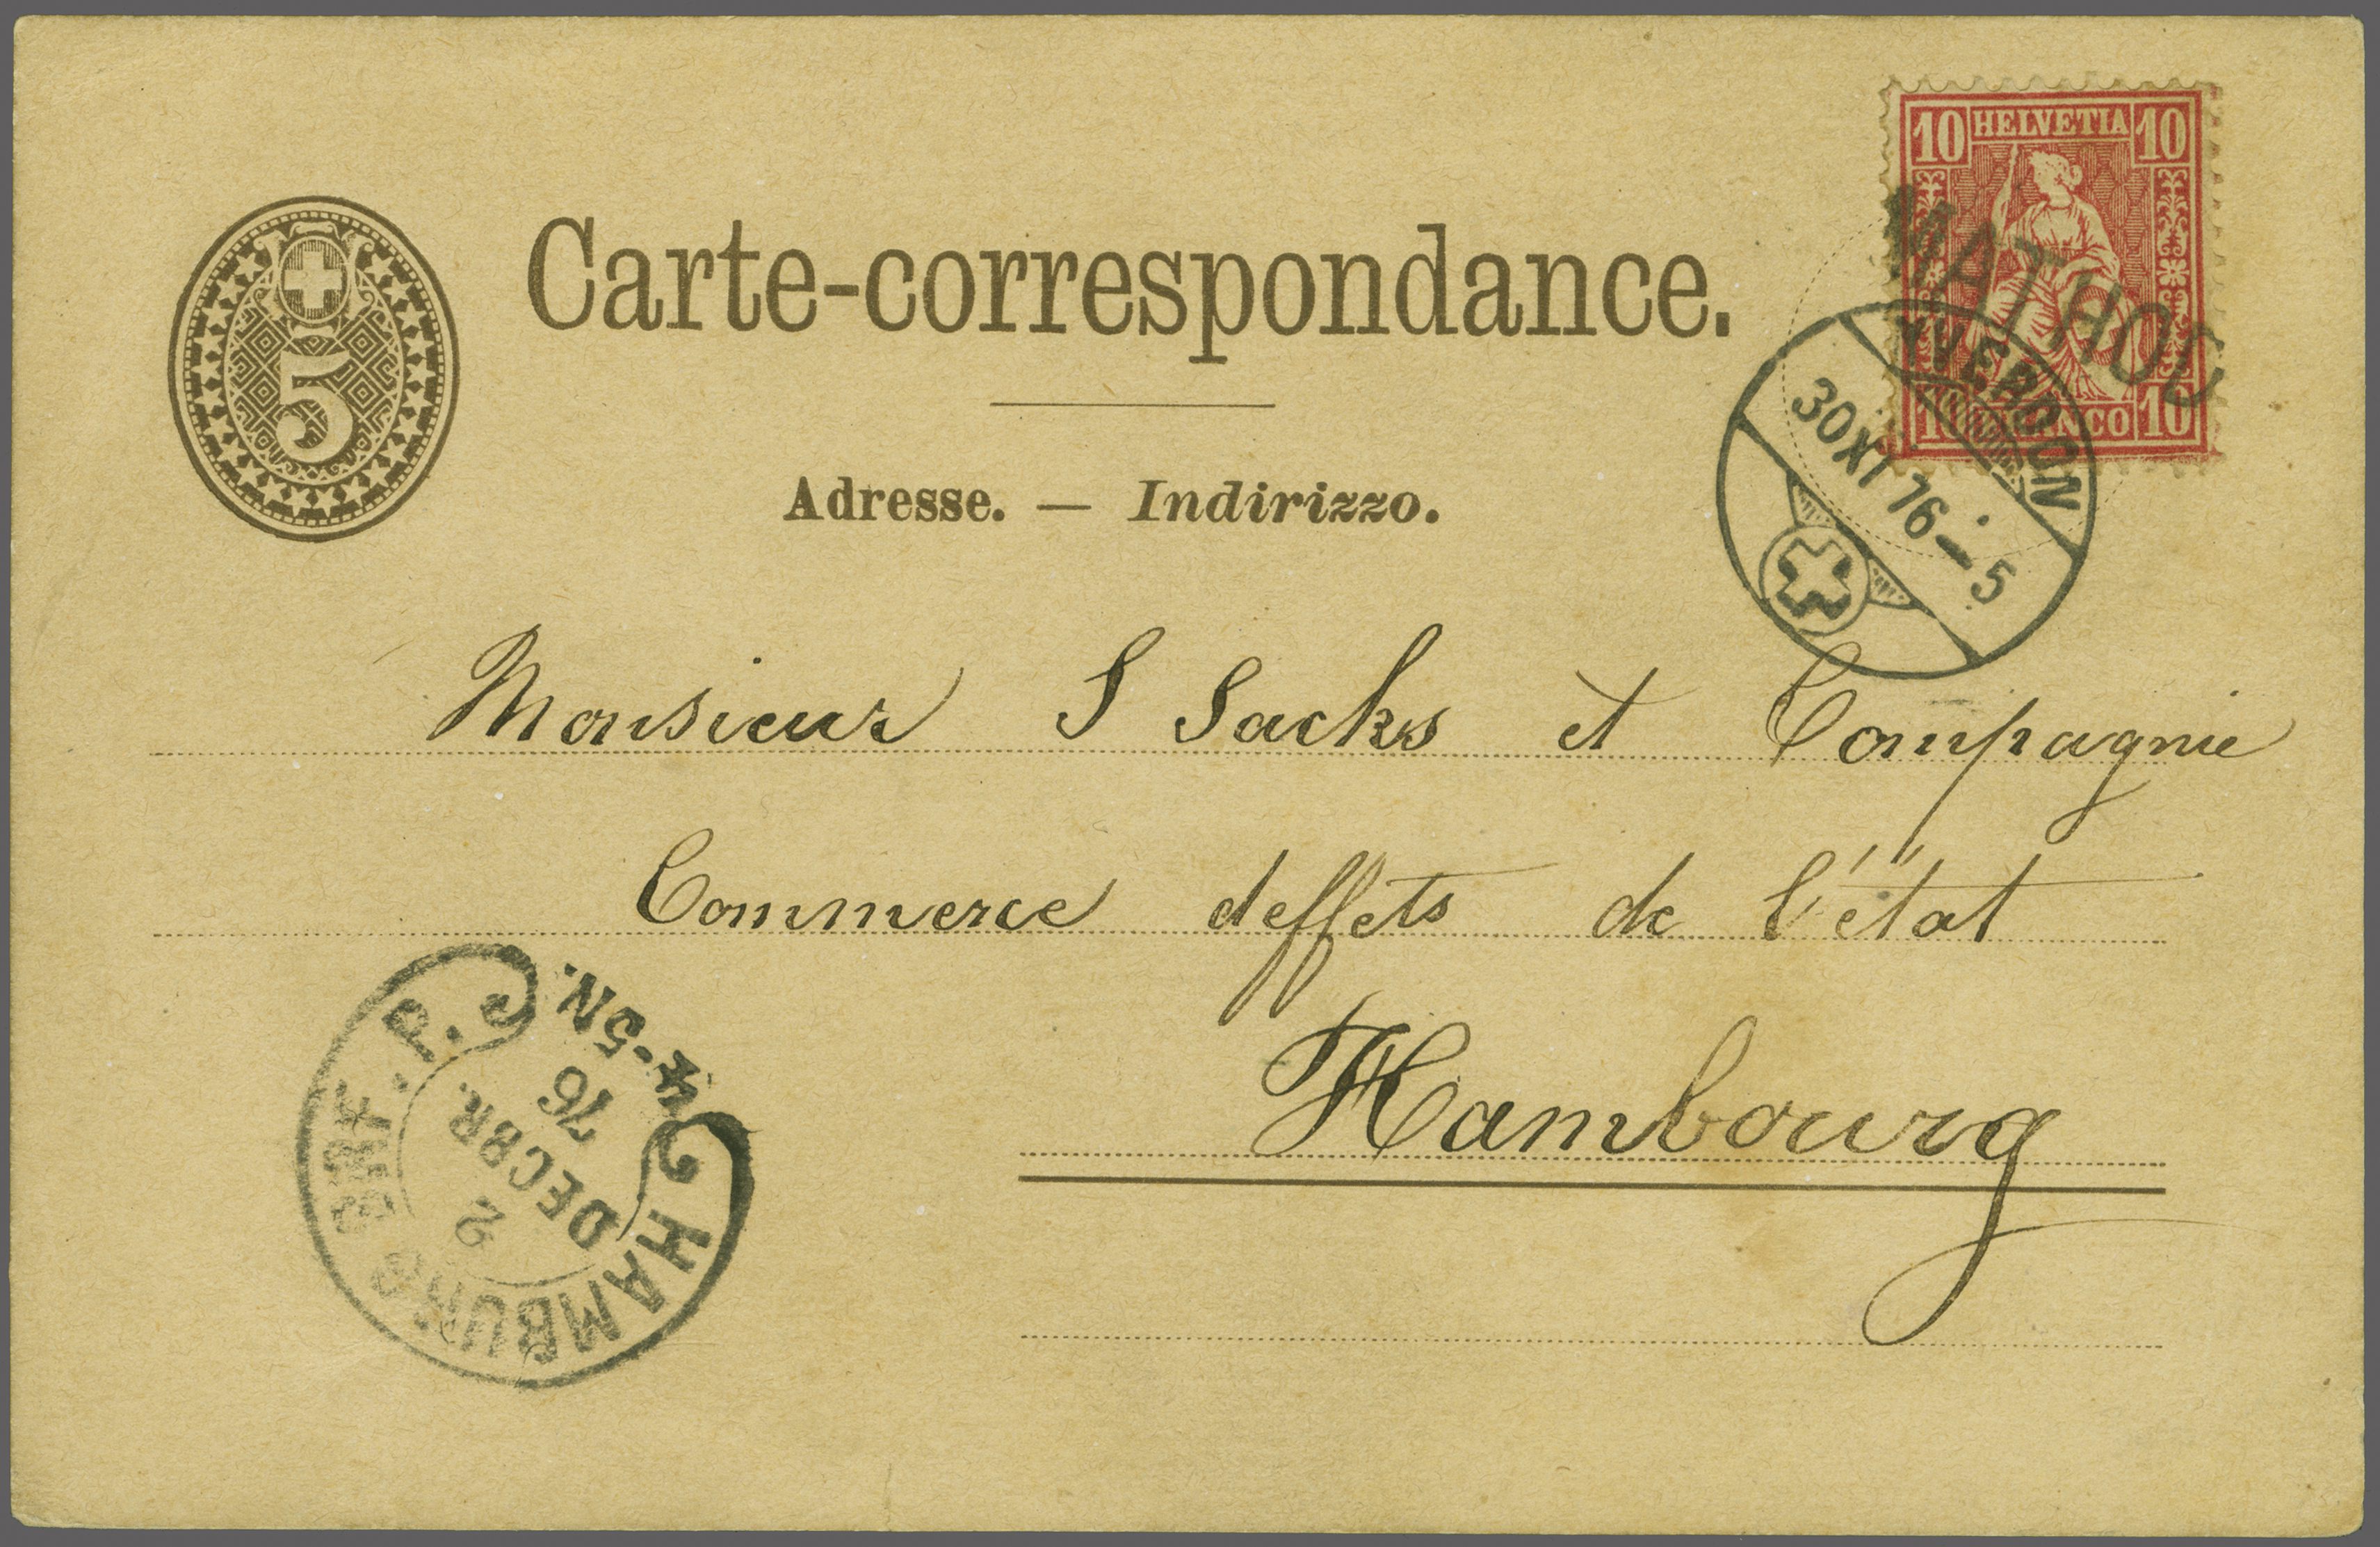 10 HELVETIA 10
MATHOD
10 FRANCO 10
5
Carte-correspondance.
Adresse. — Indirizzo.
YVERDON
30 XI 76 – 5
Monsieur S Sacks et Compagnie
Commerce deffets de l'état
Hambourg
HAMBURG BRF. P.
2
DECBR.
76
4-5N.